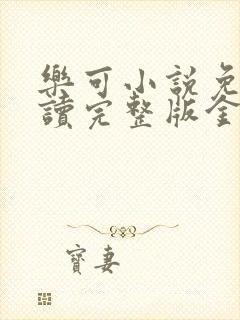 樂可小說免
讀完整版全
寶妻